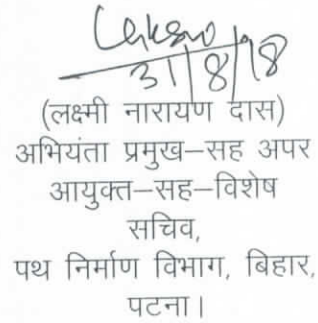 31/8/18
(लक्ष्मी नारायण दास)
अभियंता प्रमुख–सह अपर
आयुक्त–सह–विशेष
सचिव,
पथ निर्माण विभाग, बिहार,
पटना।